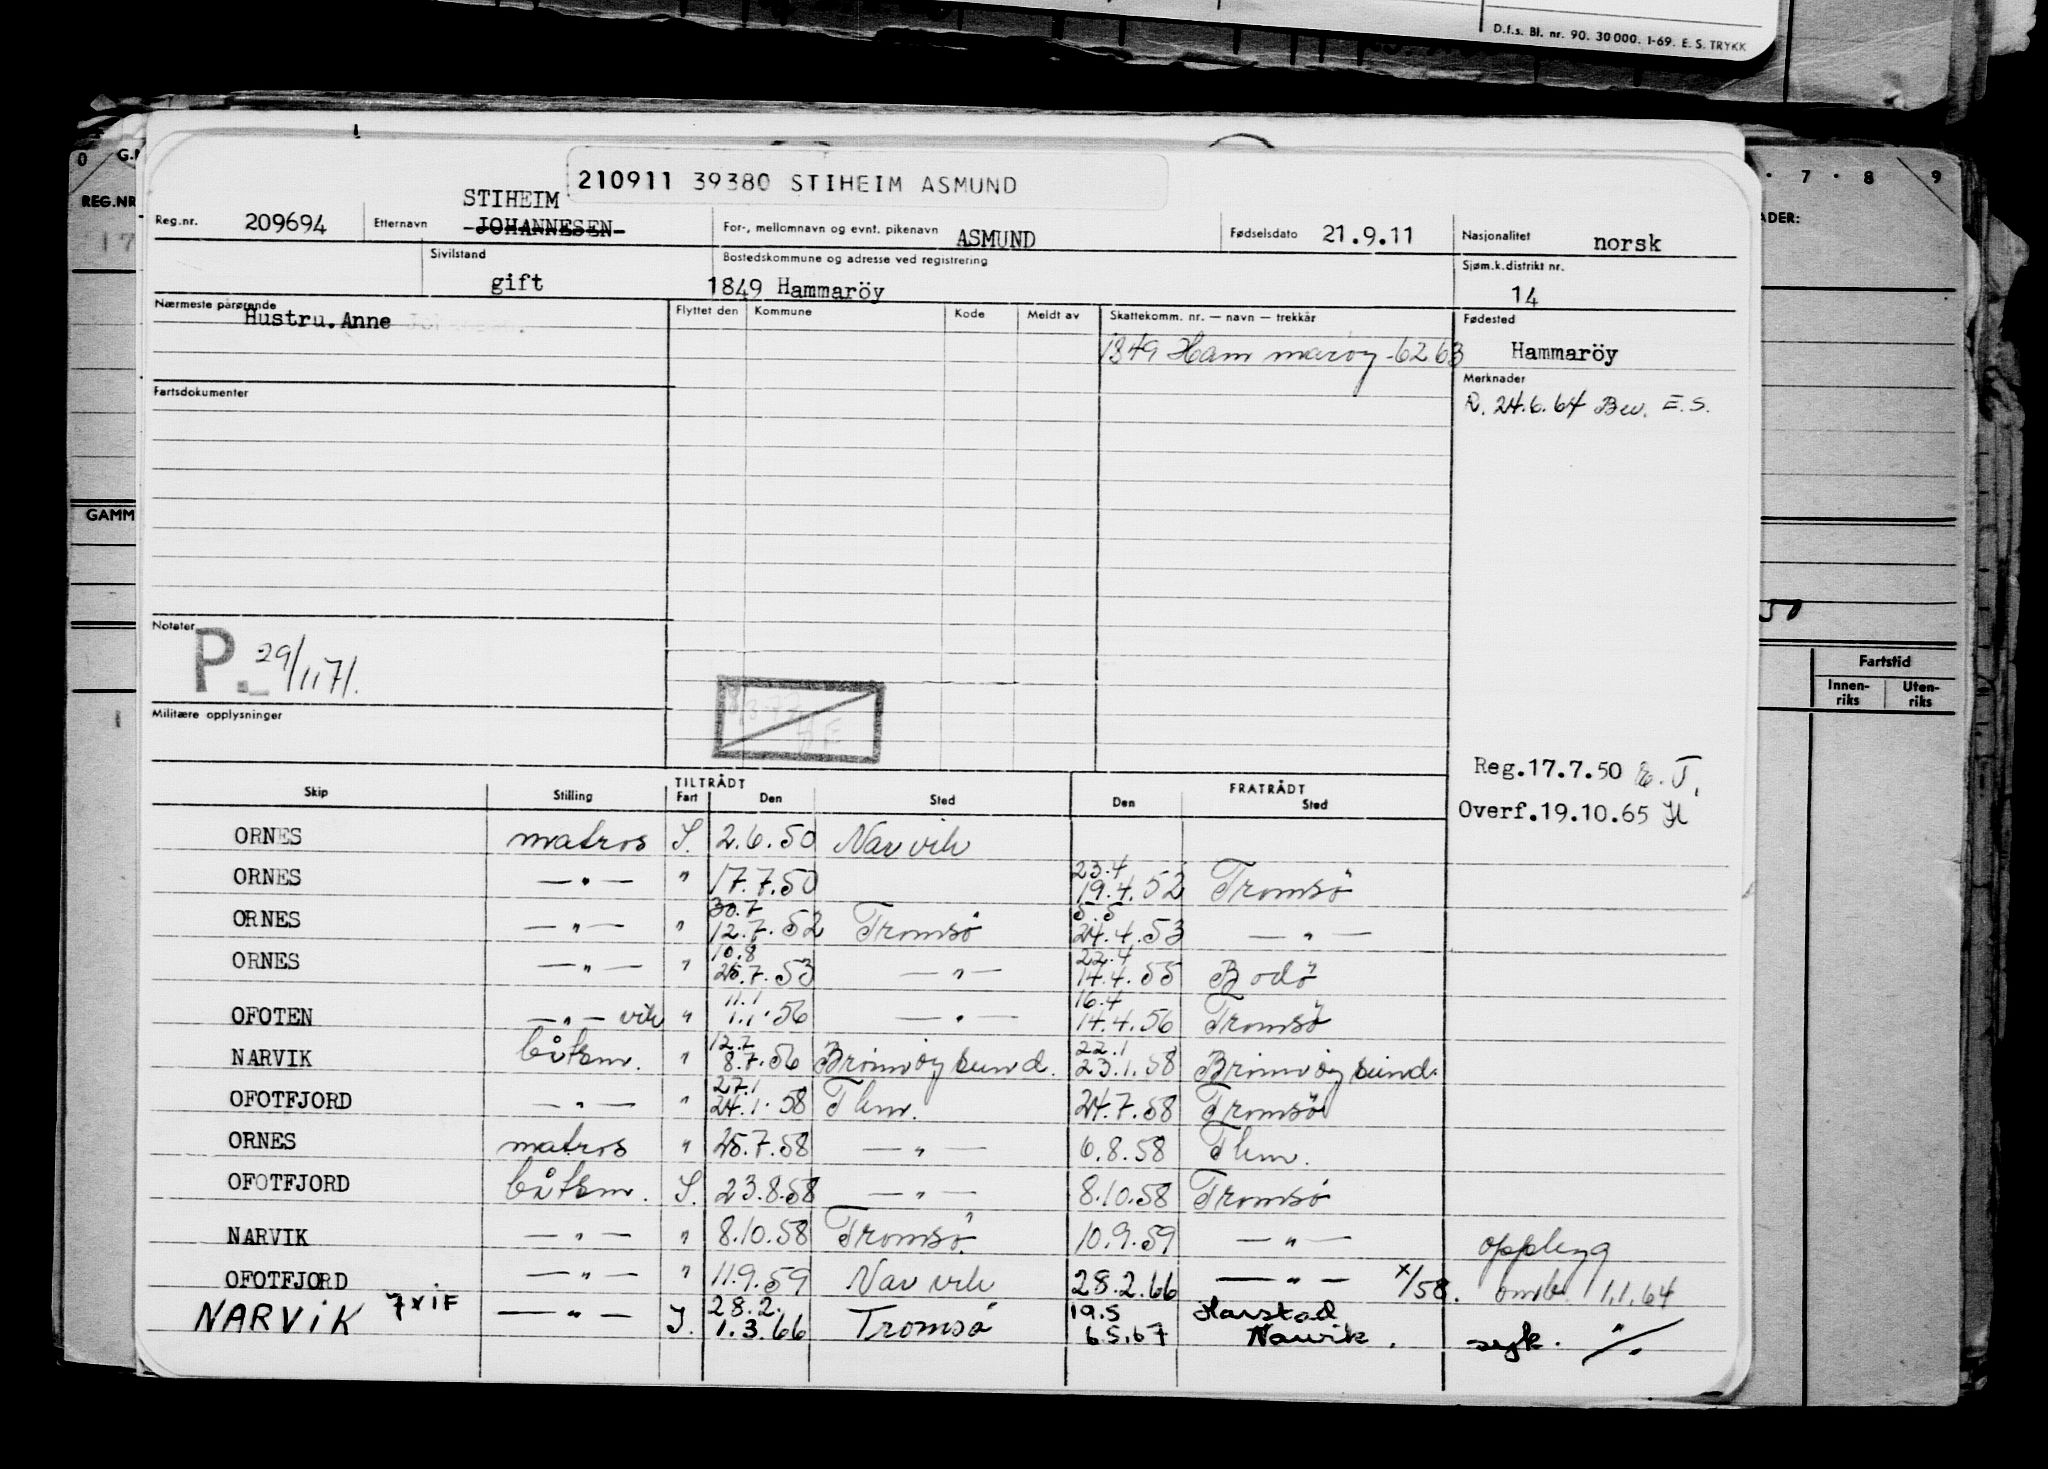 D.f.s. Bl. nr. 90. 30 000. 1-69. E. S. TRYKK
0 G.
REG.NR
17
GAMM
7 · 8 9
ADER:
50
Fartstid
Innen-riks Uten-riks
210911 39380 STIHEIM ASMUND
STIHEIM
Reg.nr. 209694 Etternavn JOHANNESEN For-, mellomnavn og evnt. pikenavn ASMUND Fødselsdato 21.9.11 Nasjonalitet norsk
Sivilstand gift Bostedskommune og adresse ved registrering 1849 Hammaröy Sjøm.k.distrikt nr. 14
Nærmeste pårørende Hustru. Anne Flyttet den Kommune Kode Meldt av Skattekomm. nr. — navn — trekkår Fødested
1849 Hammarøy -62 63 Hammaröy
Fartsdokumenter Merknader
R. 24.6.64 Bev. E.S.
Notater
P. 29/1171.
Militære opplysninger
Reg.17.7.50
Overf.19.10.65
TILTRÅDT FRATRÅDT
Skip Stilling Fart Den Sted Den Sted
ORNES matros S. 2.6.50 Narvik
23.4
ORNES —"— " 17.7.50 19.4.52 Tromsö
30.7 5.5
ORNES —"— " 12.7.52 Tromsö 24.4.53 —"—
10.8 22.4
ORNES —"— " 25.7.53 —"— 14.4.55 Bodö
11.1 16.4
OFOTEN —"— vik " 1.1.56 —"— 14.4.56 Tromsö
12.7 22.1
NARVIK båtsm. " 8.7.56 Brönnöysund. 23.1.58 Brönnöysund.
27.1
OFOTFJORD —"— " 24.1.58 Thm. 24.7.58 Tromsö
ORNES matros " 25.7.58 —"— 6.8.58 Thm.
OFOTFJORD båtsm. S. 23.8.58 —"— 8.10.58 Tromsö
NARVIK —"— " 8.10.58 Tromsö 10.9.59 —"— opplegg
OFOTFJORD —"— " 11.9.59 Narvik 28.2.66 —"— x/58. omb. 1.1.64
28.2. 19.5 Harstad
NARVIK 7 x iF —"— I. 1.3.66 Tromsö 6.5.67 Narvik. syk. "/.